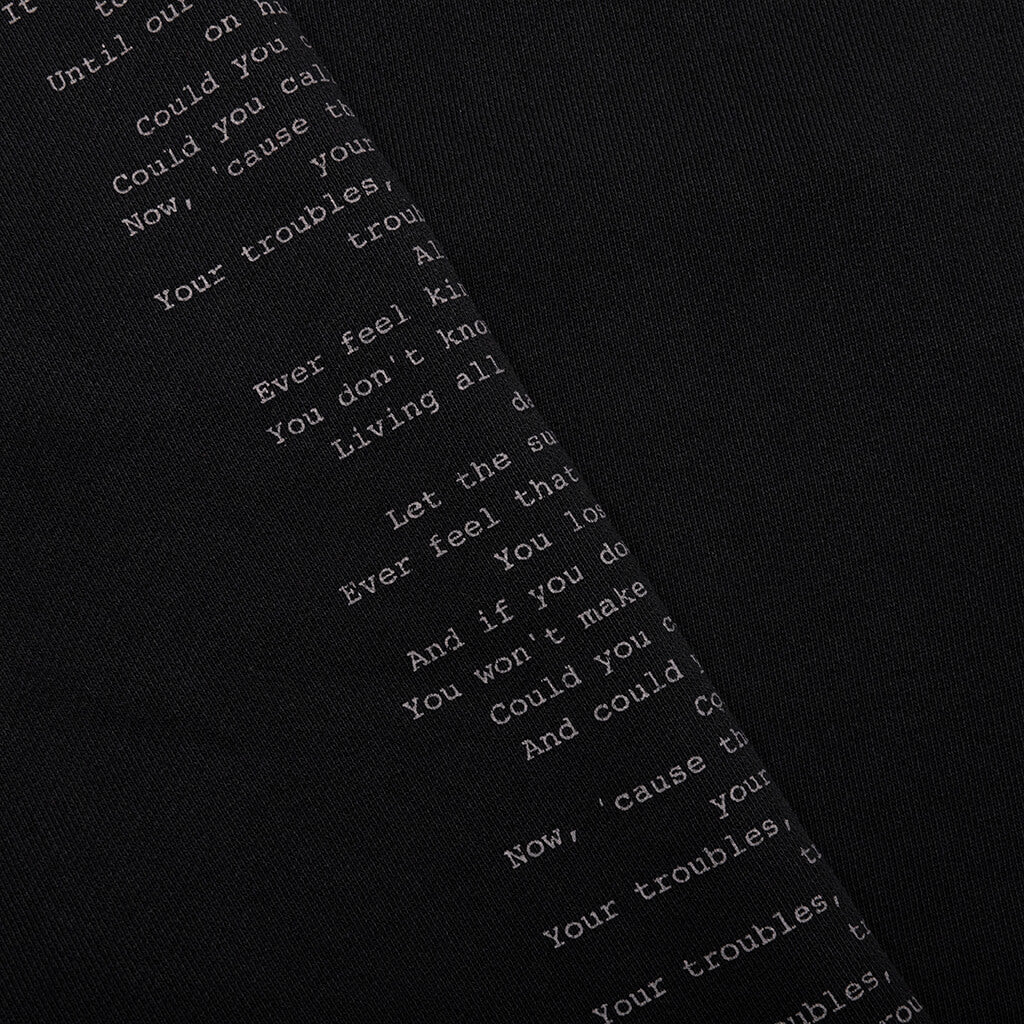 It to
Until our
on h
Could you c
Could you cal
Now, 'cause th
your
Your troubles,
troub
Al
Ever feel kin
You don't kno
Living all
da
Let the su
Ever feel that
You los
And if you do
You won't make
Could you c
And could y
Co
Now, 'cause th
your
Your troubles,
t
Your troubles,
t
ubles,
rou